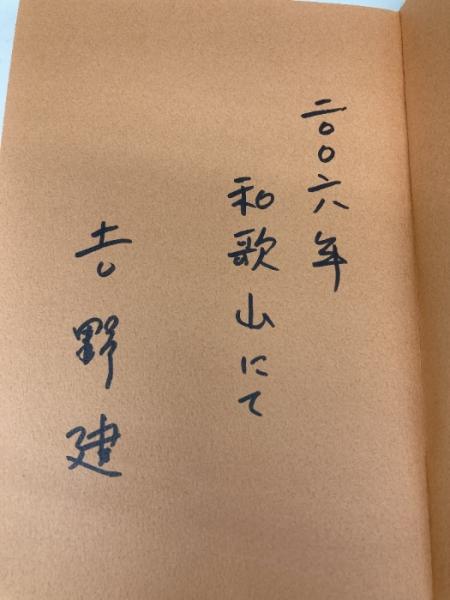 二〇〇六年
和歌山にて
吉野建